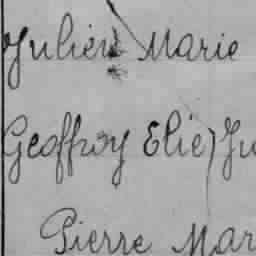 Julien Marie
Geoffroy Elie Ju
Pierre Mar